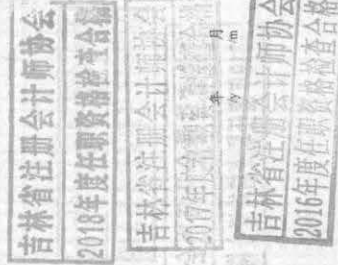 吉林省注册会计师协会
2018年度在职资格检查合格
吉林省注册会计师协会
2017年度
年 月
/y /m
吉林省注册会计师协会
2016年度在职资格检查合格